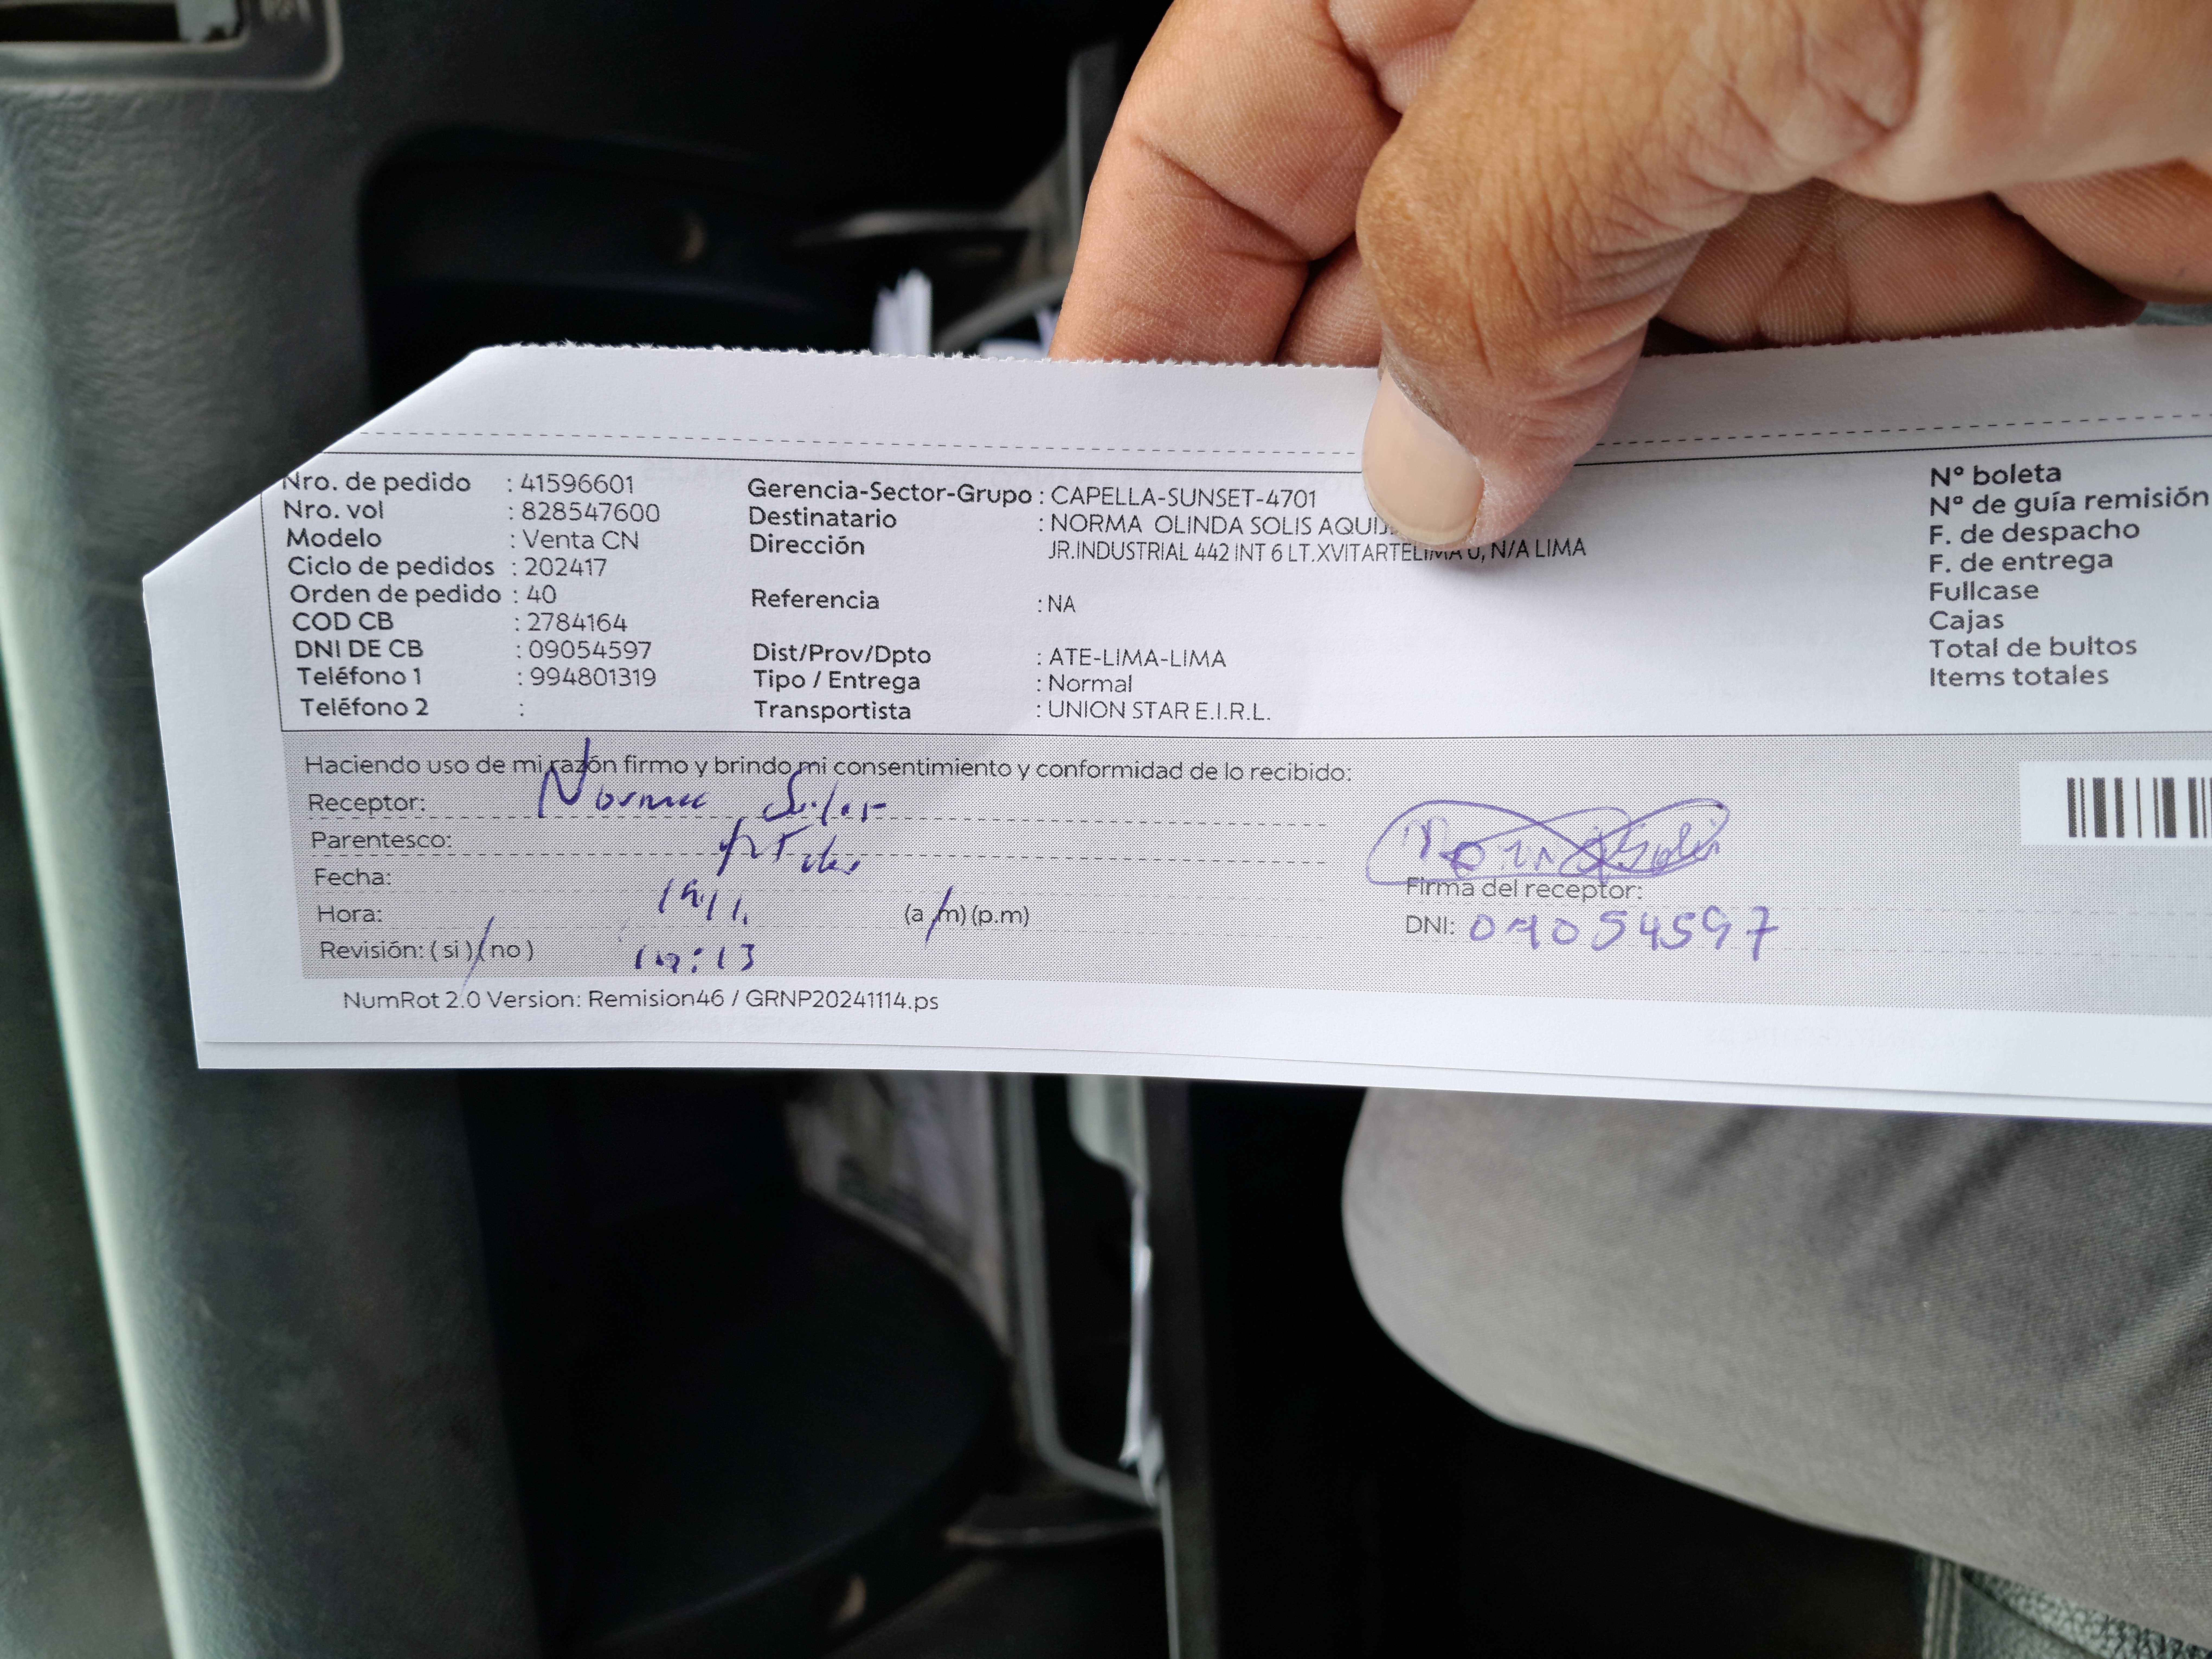 Nro. de pedido : 41596601
Nro. vol : 828547600
Modelo : Venta CN
Ciclo de pedidos : 202417
Orden de pedido : 40
COD CB : 2784164
DNI DE CB : 09054597
Teléfono 1 : 994801319
Teléfono 2 :
Gerencia-Sector-Grupo : CAPELLA-SUNSET-4701
Destinatario : NORMA OLINDA SOLIS
Dirección JR.INDUSTRIAL 442 INT 6 LT.XVITARTELIMA 0, N/A LIMA
Referencia : NA
Dist/Prov/Dpto : ATE-LIMA-LIMA
Tipo / Entrega : Normal
Transportista : UNION STAR E.I.R.L.
N° boleta
N° de guía remisión
F. de despacho
F. de entrega
Fullcase
Cajas
Total de bultos
Items totales
Haciendo uso de mi razón firmo y brindo mi consentimiento y conformidad de lo recibido:
Receptor: Norma Solis
Parentesco:
Fecha:
Hora: (a.m) (p.m)
Revisión: ( si ) ( no )
Firma del receptor:
DNI: 09054597
NumRot 2.0 Version: Remision46 / GRNP20241114.ps